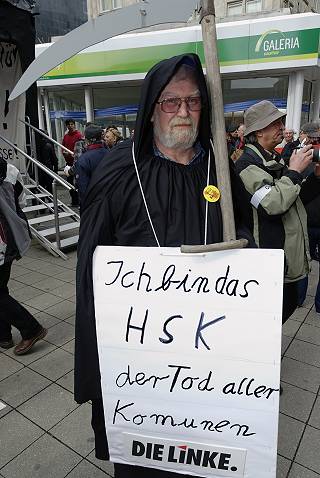 GALERIA
Ich bin das
HSK
der Tod aller
Komunen
DIE LINKE.